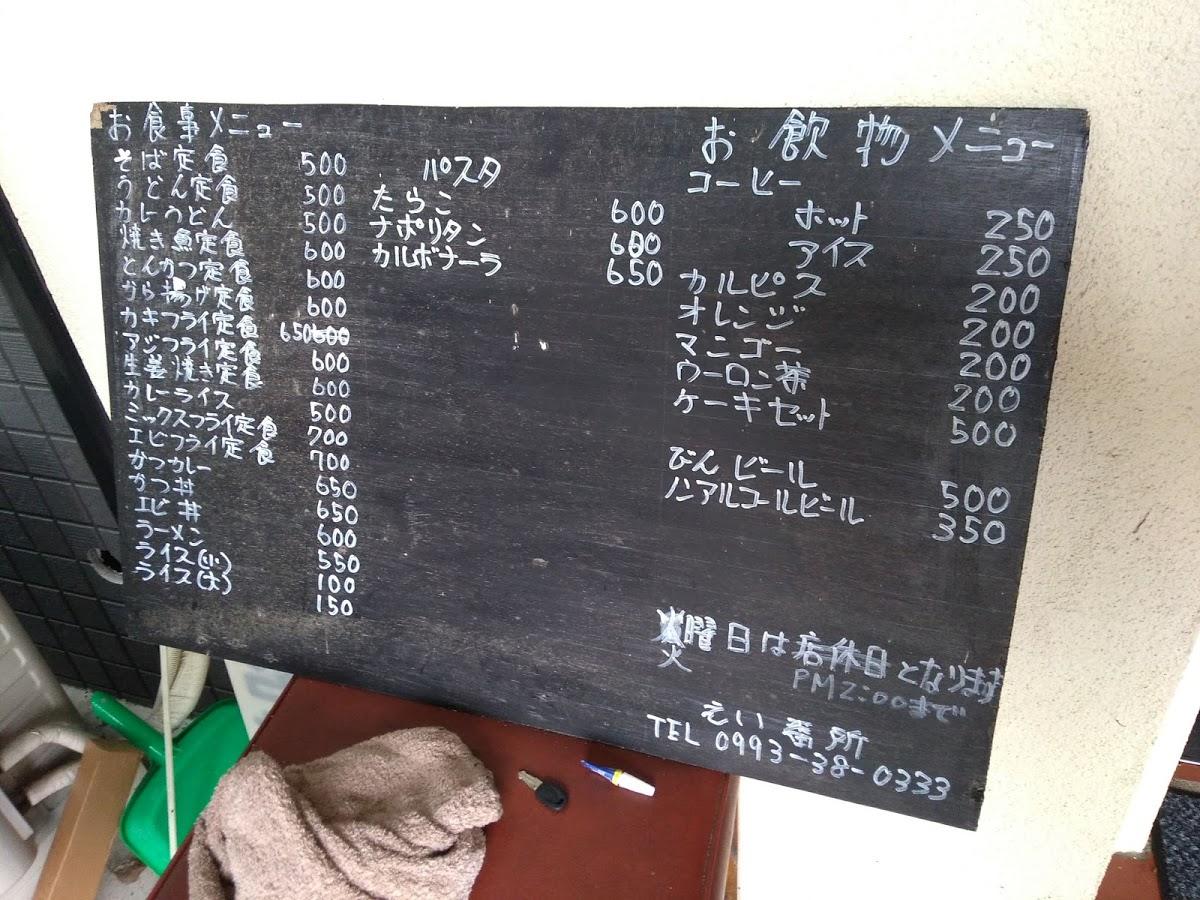 お食事メニュー
そば定食 500
うどん定食 500
カレーうどん 500
焼き魚定食 600
とんかつ定食 600
から揚げ定食 600
カキフライ定食 650 600
アジフライ定食 600
生姜焼き定食 600
カレーライス 500
ミックスフライ定食 700
エビフライ定食 700
かつカレー 650
かつ丼 650
エビ丼 600
ラーメン 550
ライス(小) 100
ライス(大) 150
パスタ
たらこ 600
ナポリタン 600
カルボナーラ 650
お飲物メニュー
コーヒー
ホット 250
アイス 250
カルピス 200
オレンジ 200
マンゴー 200
ウーロン茶 200
ケーキセット 500
びんビール 500
ノンアルコールビール 350
曜日は店休日となります
火 PM2:00まで
えい番所
TEL 0993-38-0333